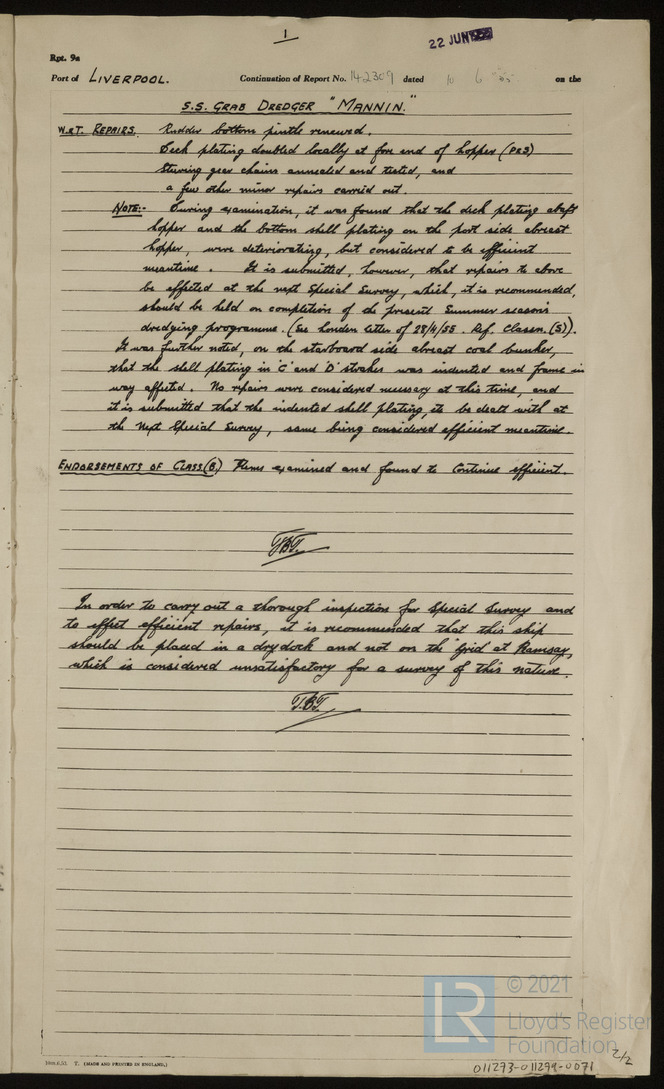 1
22 JUN
Rpt. 9a
Port of LIVERPOOL. Continuation of Report No. 142309 dated 10 6 55 on the
S.S. GRAB DREDGER "MANNIN."
W.&T. REPAIRS. Rudder bottom pintle renewed.
Deck plating doubled locally at fore end of hopper (P&S)
Steering gear chains annealed and tested, and
a few other minor repairs carried out.
NOTE:- During examination, it was found that the deck plating abaft
hopper and the bottom shell plating on the port side abreast
hopper, were deteriorating, but considered to be efficient
meantime. It is submitted, however, that repairs to above
be effected at the next Special Survey, which, it is recommended,
should be held on completion of the present Summer season's
dredging programme. (See London letter of 28/4/55. Ref. Classn. (S)).
It was further noted, on the starboard side abreast coal bunker,
that the shell plating in 'C' and 'D' strakes was indented and frame in
way affected. No repairs were considered necessary at this time, and
it is submitted that the indented shell plating, etc be dealt with at
the next Special Survey, same being considered efficient meantime.
ENDORSEMENTS OF CLASS.(B.) Items examined and found to continue efficient.
T.B.T.
In order to carry out a thorough inspection for Special Survey and
to effect efficient repairs, it is recommended that this ship
should be placed in a drydock and not on the Grid at Ramsay,
which is considered unsatisfactory for a survey of this nature.
T.B.T.
LR © 2021
Lloyd's Register
Foundation
T. (MADE AND PRINTED IN ENGLAND.)
2/2
011273-011299-0071